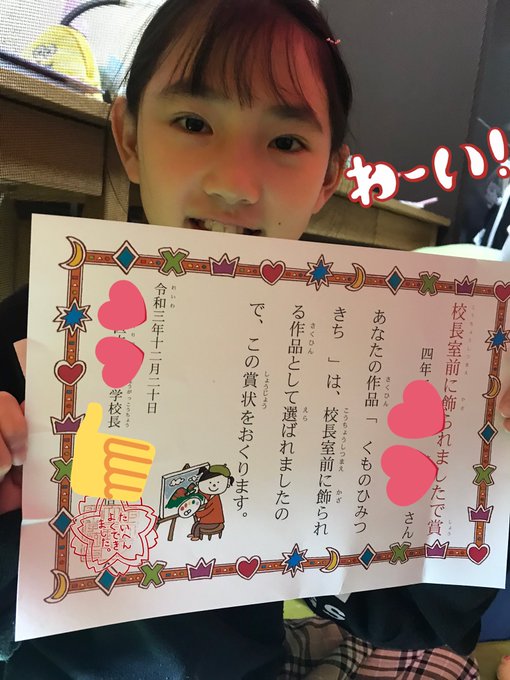 わーい!
校長室前に飾られましたで賞
四年
さん
あなたの作品「くものひみつ
きち 」は、校長室前に飾られ
る作品として選ばれましたの
で、この賞状をおくります。
令和三年十二月二十日
学校長
たいへん
よくでき
ました。